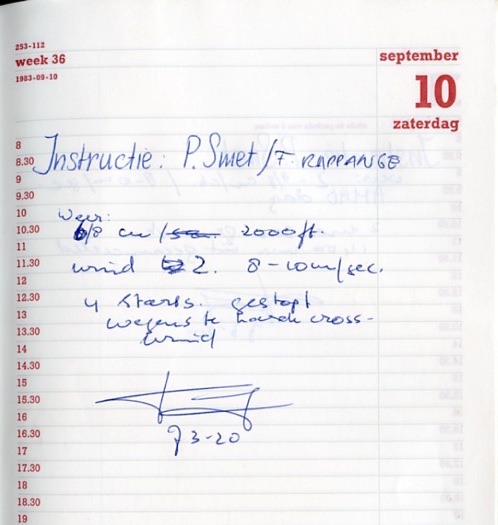 253-112
week 36
1983-09-10
september
10
zaterdag
8
8.30 Instructie: P. Smet / F. RAPPANGE
9
9.30
10 Weer:
10.30 6/8 cu / 2000 ft.
11
11.30 wind 2. 8-10 m/sec.
12
12.30 4 starts. gestopt
13 wegens te harde cross-
13.30 wind
14
14.30
15
15.30
16
16.30 73-20
17
17.30
18
18.30
19